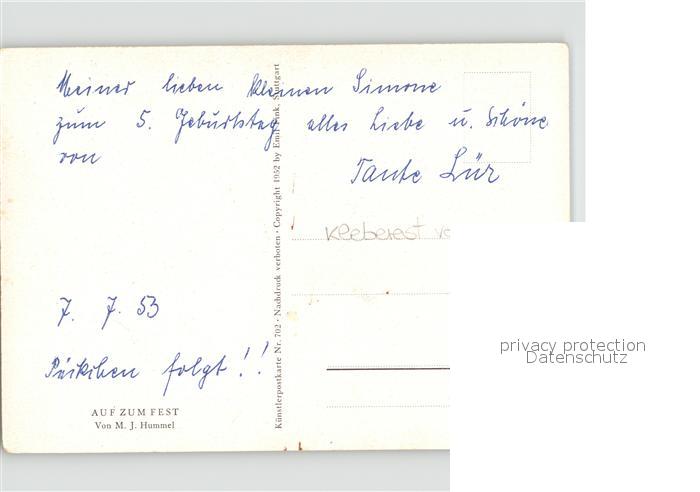 Meiner lieben kleinen Simone
zum 5. Geburtstag alles Liebe u. Schöne
von
Tante
Kleberest
7. 7. 53
Päckchen folgt!!
AUF ZUM FEST
Von M. J. Hummel
Künstlerpostkarte Nr. 702 · Nachdruck verboten · Copyright 1952 by Emil Fink, Stuttgart
privacy protection
Datenschutz